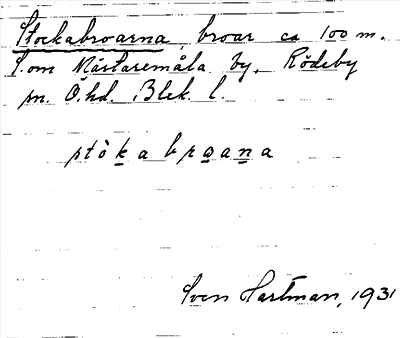 Stockabroarna, broar ca 100 m.
S. om Mästaremåla by, Rödeby
sn. Ö. hd. Blek. l.
stòkabroana
Sven Hartman, 1931